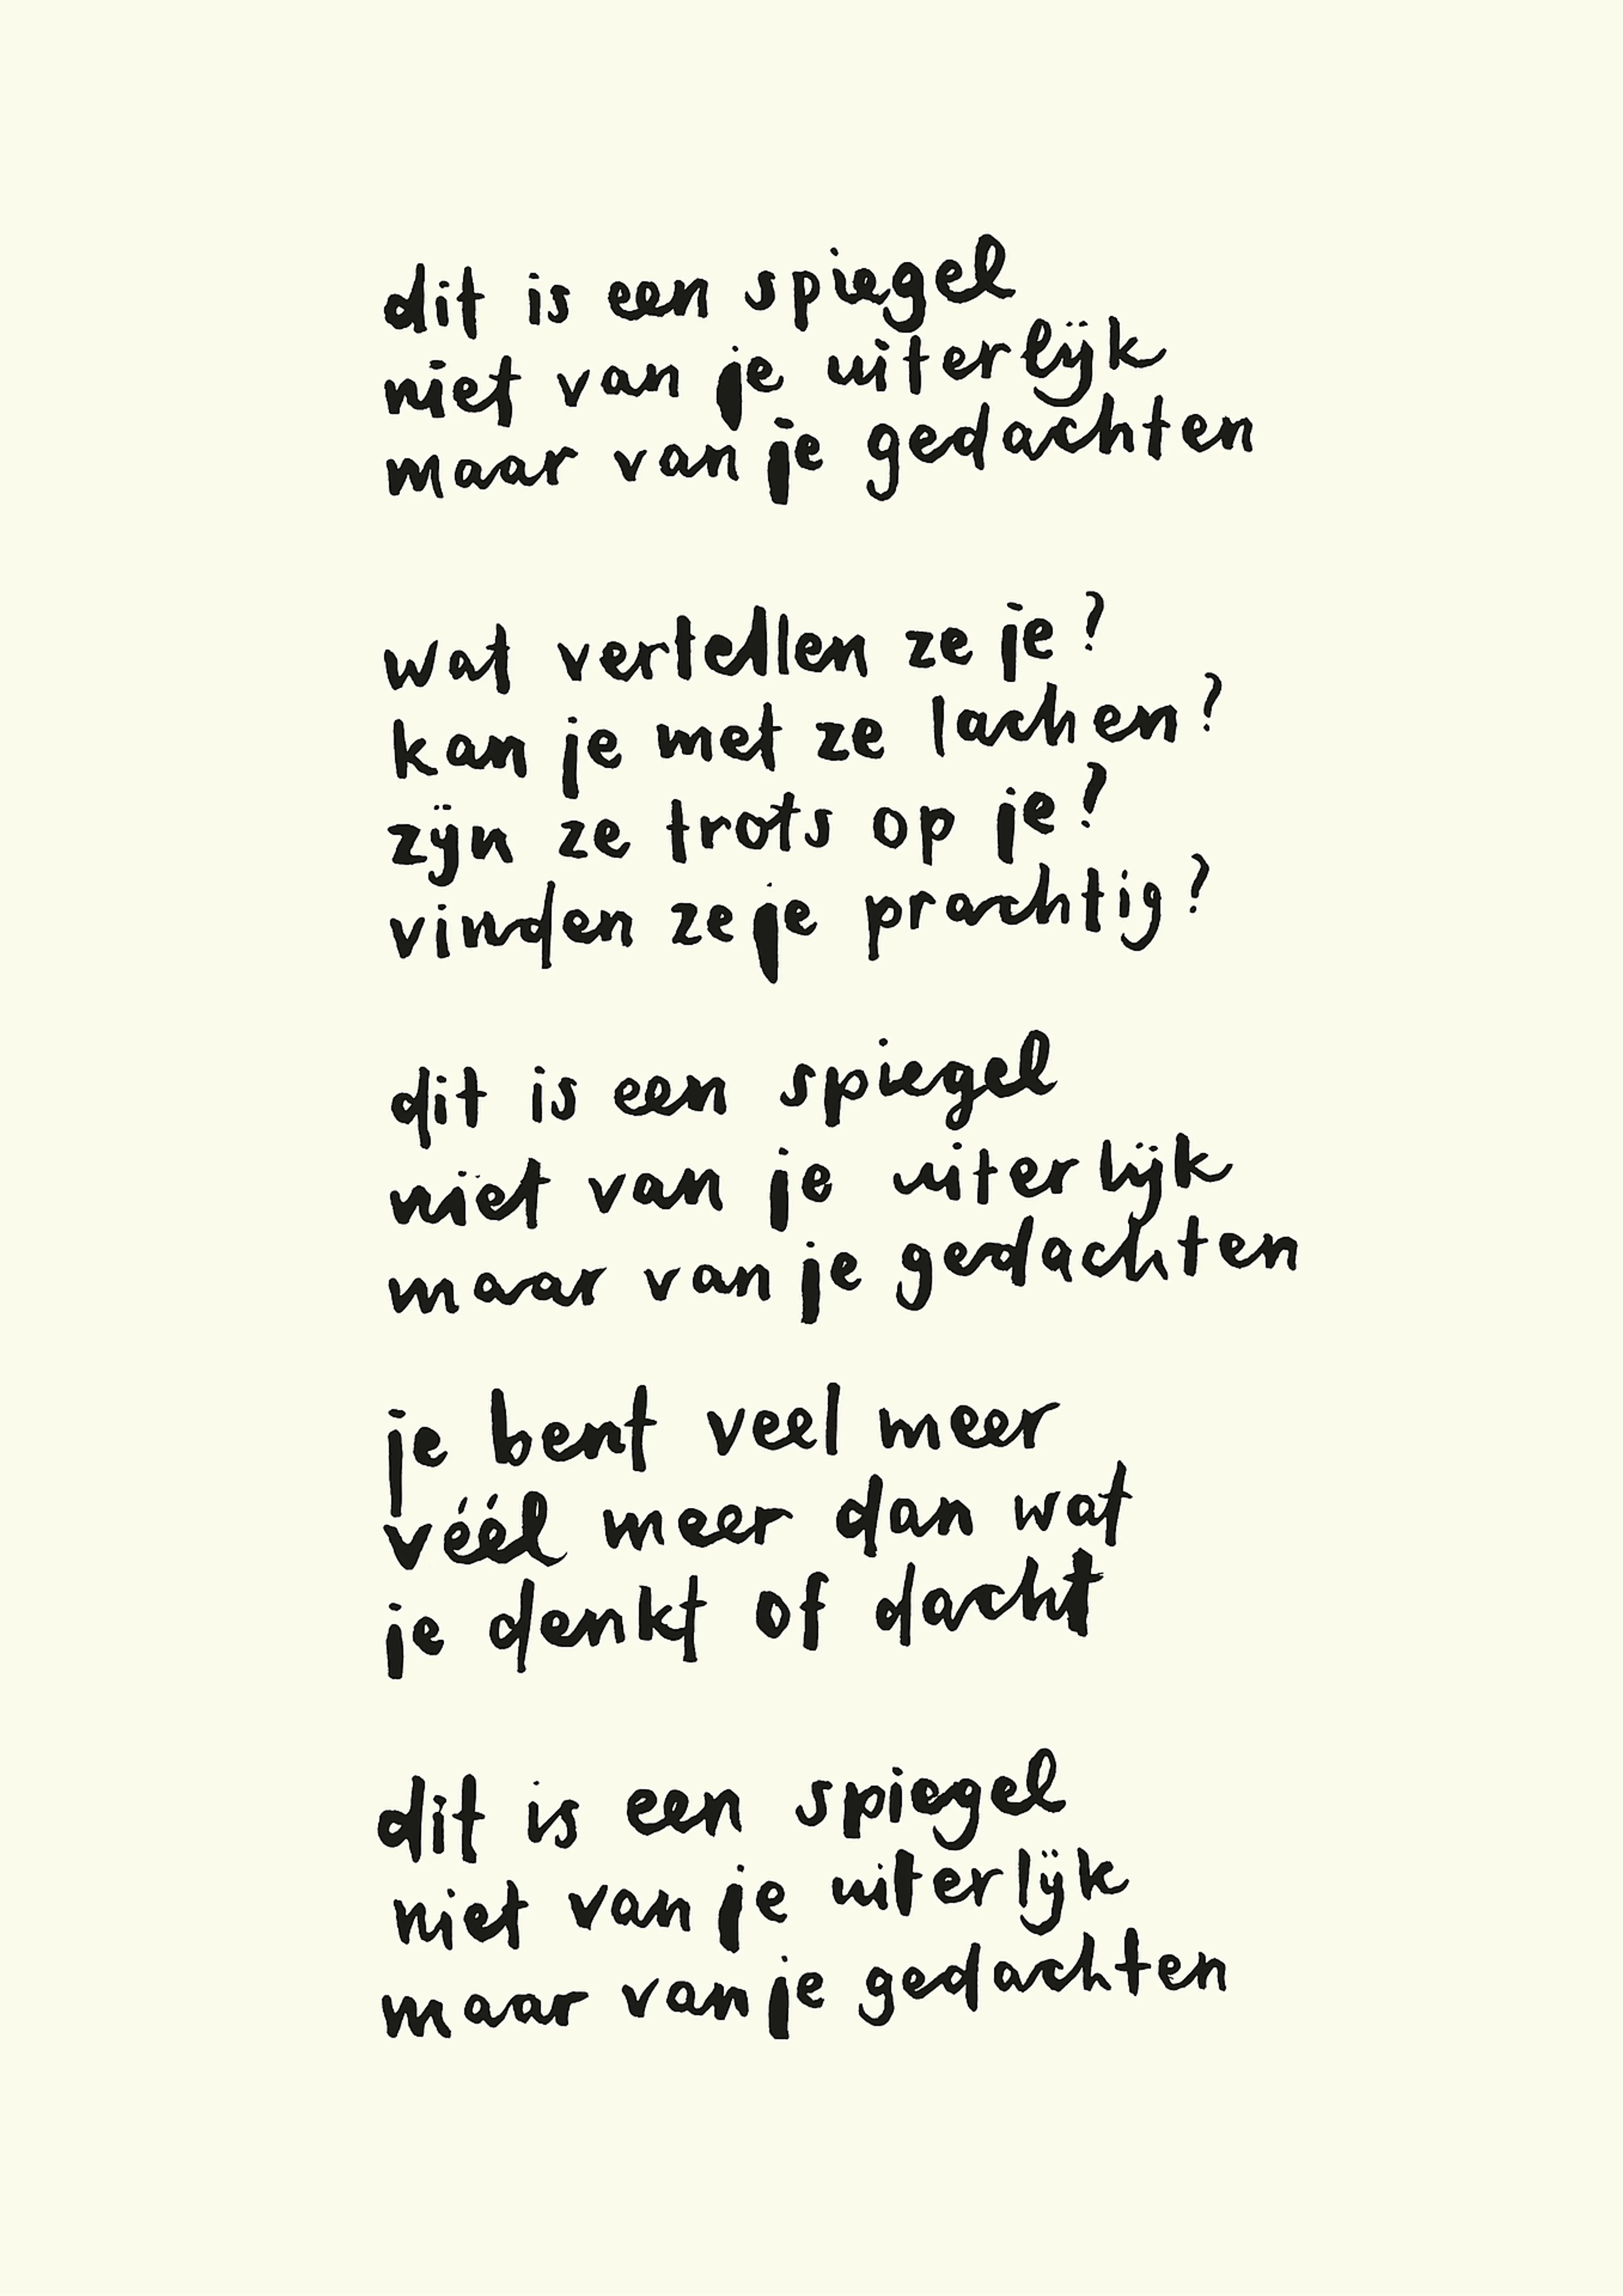 dit is een spiegel
niet van je uiterlijk
maar van je gedachten
wat vertellen ze je?
kan je met ze lachen?
zijn ze trots op je?
vinden ze je prachtig?
dit is een spiegel
niet van je uiterlijk
maar van je gedachten
je bent veel meer
véél meer dan wat
je denkt of dacht
dit is een spiegel
niet van je uiterlijk
maar van je gedachten